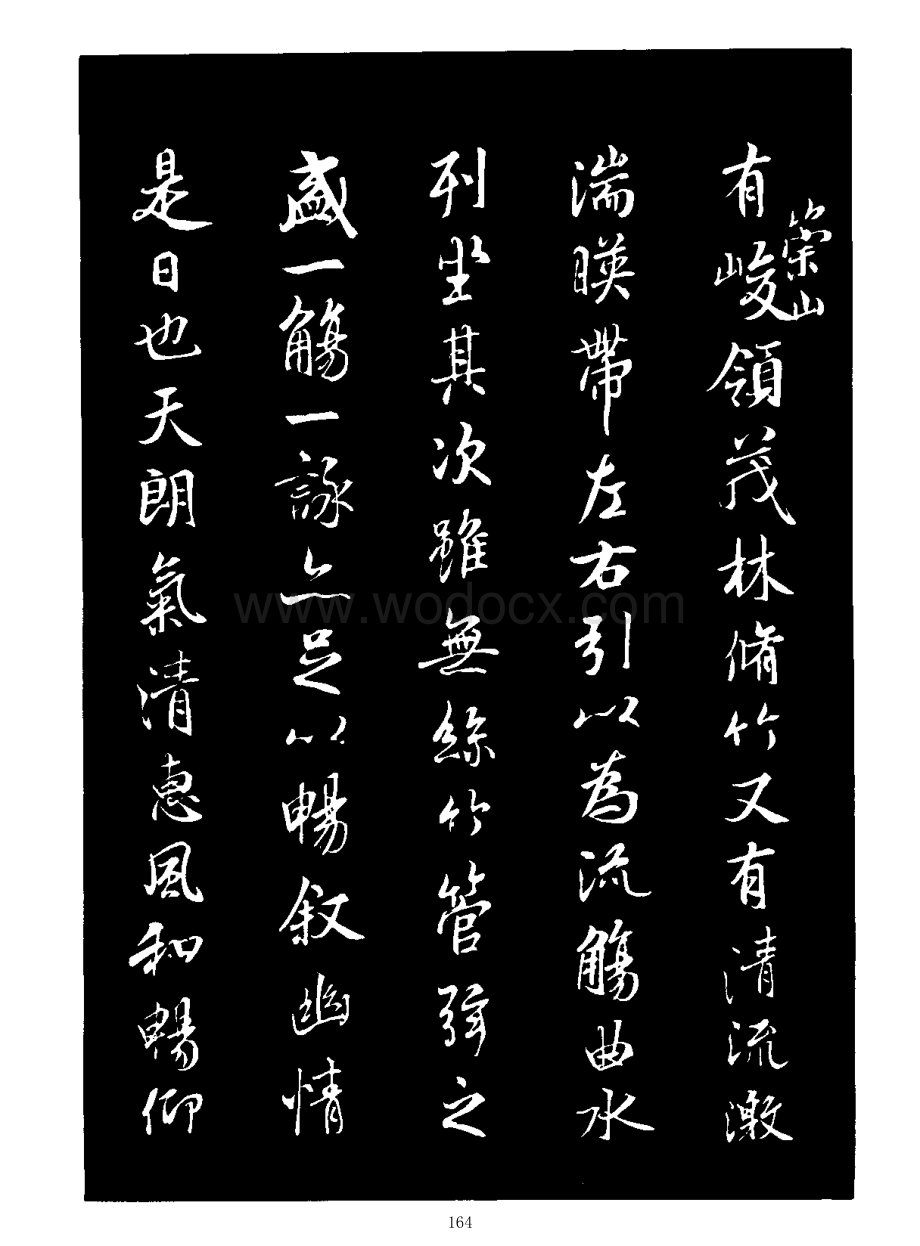 有崇山峻領茂林脩竹又有清流激
湍暎帶左右引以為流觴曲水
列坐其次雖無絲竹管弦之
盛一觴一詠亦足以暢叙幽情
是日也天朗氣清惠風和暢仰
www.wodocx.com
164